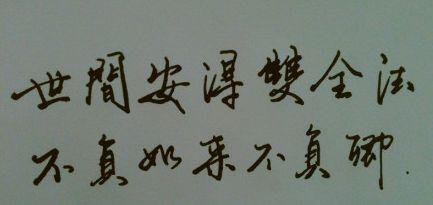 世間安得雙全法
不負如来不負卿.